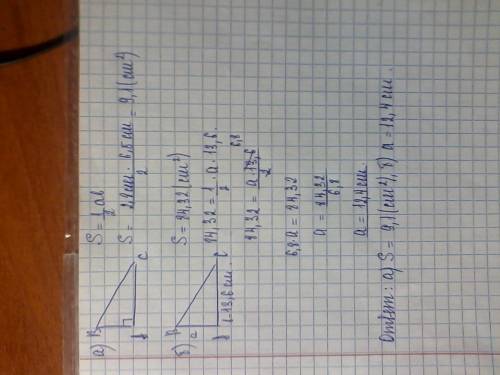 а) B
S = 1/2 ab
S = 2,8 см · 6,5 см / 2 = 9,1 (см²)
C
б) B
S = 84,32 (см²)
a
84,32 = 1/2 · a · 13,6.
C
b = 13,6 см.
84,32 = a · 13,6 / 2
6,8
6,8 · a = 84,32
a = 84,32 / 6,8
a = 12,4 см.
Ответ: а) S = 9,1 (см²), б) a = 12,4 см.